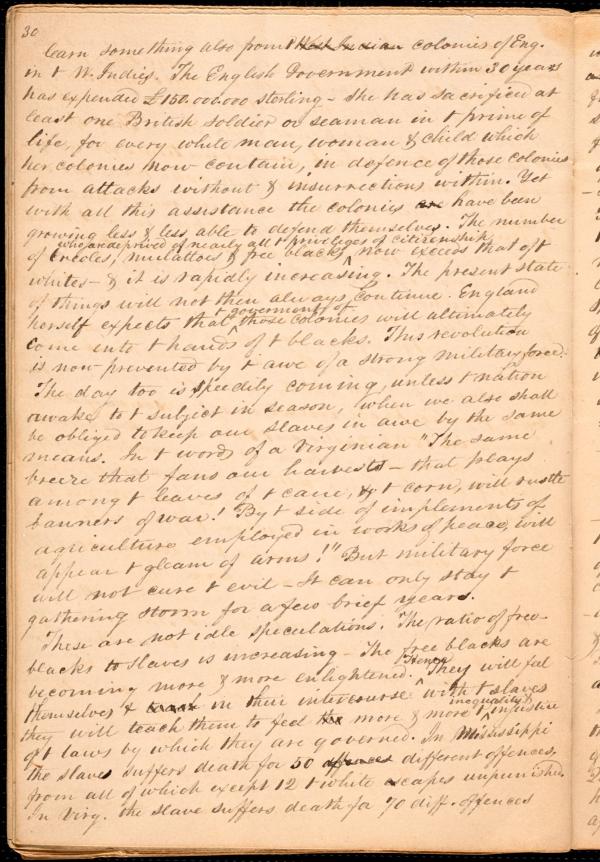 30
learn something also from t West Indian colonies of Eng.
in t W. Indies. The English Government within 30 years
has expended £150.000.000 sterling - she has sacrificed at
least one British soldier or seaman in t prime of
life, for every white man, woman & child which
her colonies now contain, in defence of those colonies
from attacks without & insurrections within. Yet
with all this assistance the colonies are have been
growing less & less able to defend themselves. The number
who are deprived of nearly all t privileges of citizenship
of Creoles, mulattoes & free blacks ^ now exceeds that of t
whites - & it is rapidly increasing. The present state
of things will not then always continue. England
t governments of
herself expects that ^ those colonies will ultimately
come into t hands of t blacks. This revolution
is now prevented by t awe of a strong military force.
The day too is speedily coming, unless t nation
awake to t subject in season, when we also shall
be obliged to keep our slaves in awe by the same
means. In t words of a Virginian "The same
breeze that fans our harvests - that plays
among t leaves of t cane, & t corn, will rustle
banners of war! By t side of implements of
agriculture employed in works of peace, will
appear t gleam of arms!" But military force
will not cure t evil - It can only stay t
gathering storm for a few brief years.
These are not idle speculations. The ratio of free
blacks to slaves is increasing - The free blacks are
becoming more & more enlightened. ^ Hence They will feel
themselves & in their intercourse with t slaves
they will teach them to feel more & more t ^ inequality & injustice
of t laws by which they are governed. In Mississippi
the slave suffers death for 50 offences different offences,
from all of which except 12 t white escapes unpunished.
In Virg. the slave suffers death for 70 diff. offences